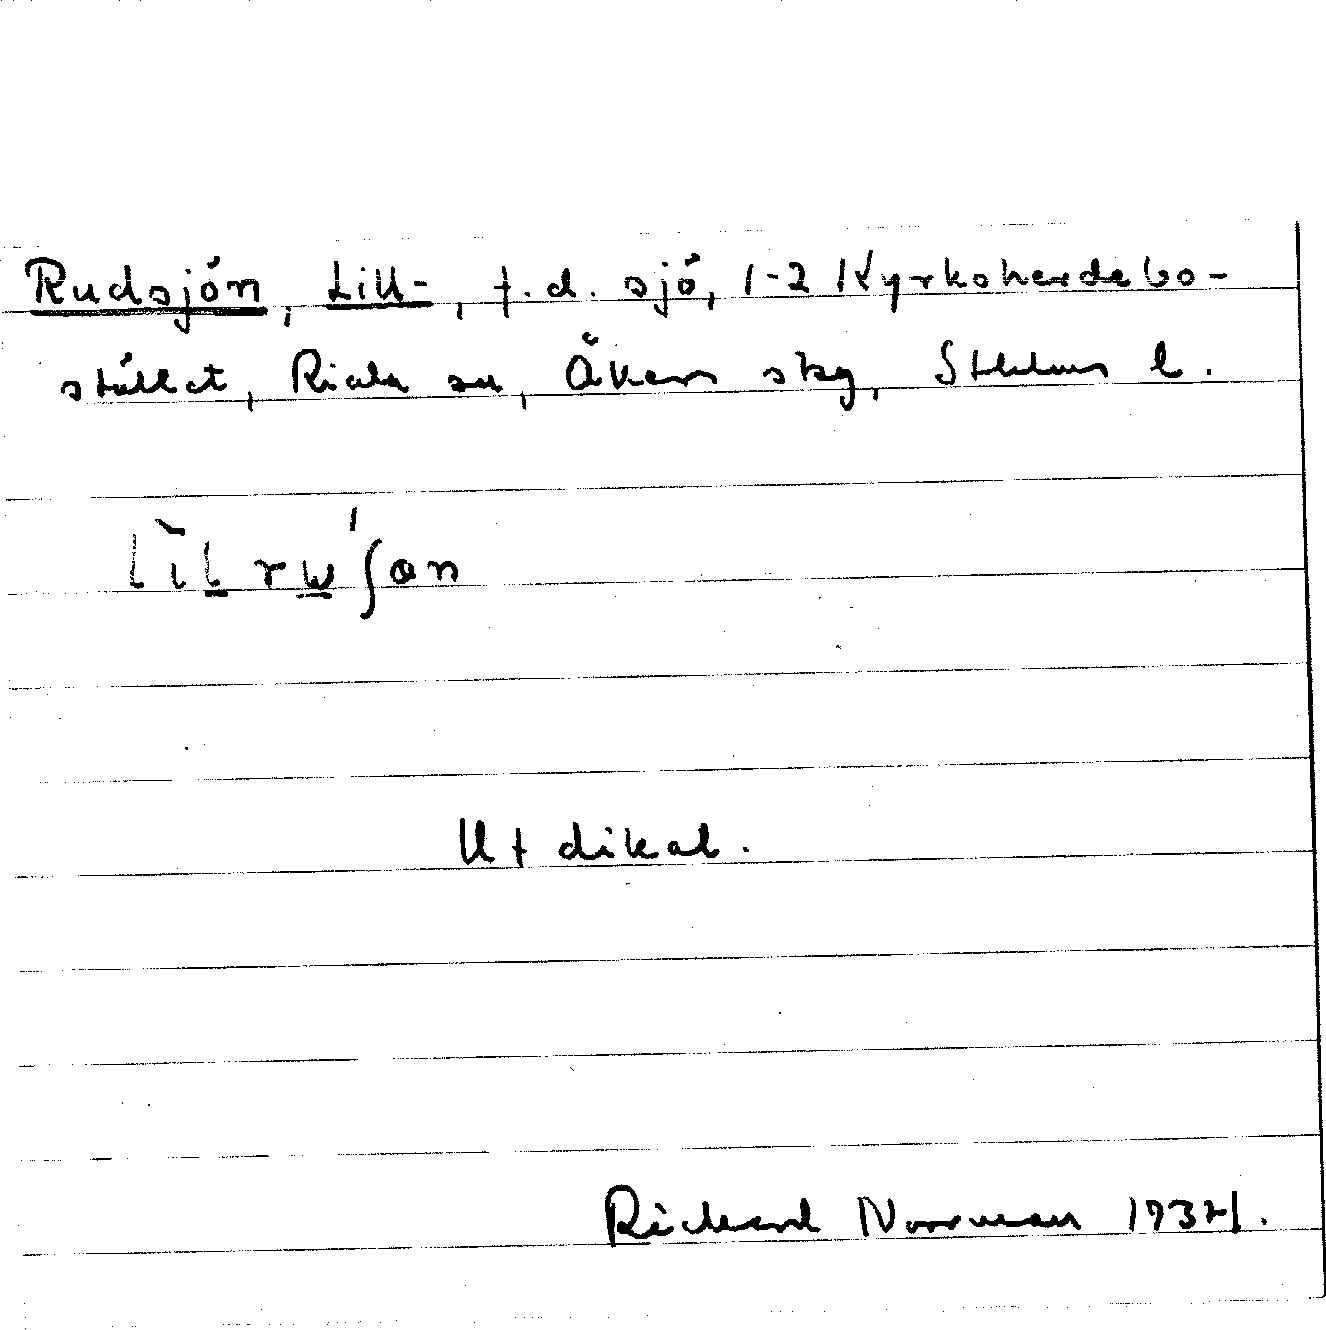 Rudsjön, Lill-, f.d. sjö, 1-2 Kyrkoherdebo-
stället, Riala sn, Åkers skg, Sthlms l.
Utdikad.
Richard Norrman 1934.